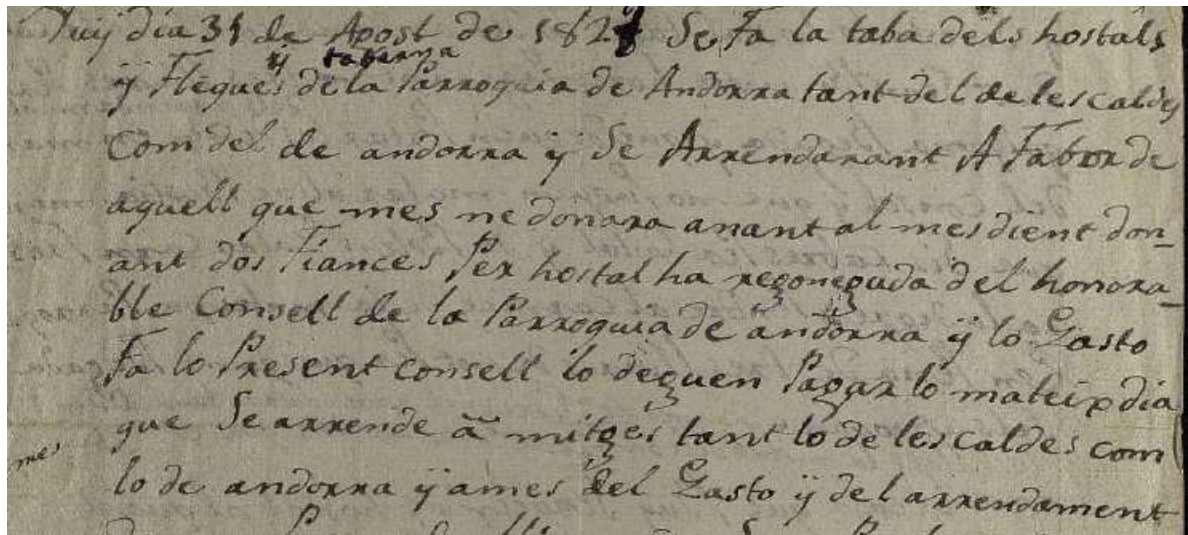 Vuÿ dia 31 de Agost de 182 Se Fa la taba dels hostals
ÿ tabarna
ÿ Fleques de la Parroquia de Andorra tant del de les caldes
Com del de andorra ÿ Se Arrendarant A Fabor de
aquell que mes ne donara anant al mes dient don-
ant dos Fiances Per hostal ha regoneguda del honora-
ble Consell de la Parroquia de andorra ÿ lo Gasto
Fa lo Present consell lo deguen Pagar lo mateix dia
que Se arrende a mitges tant lo de les caldes com
mes
lo de andorra ÿ a mes del Gasto ÿ del arrendament